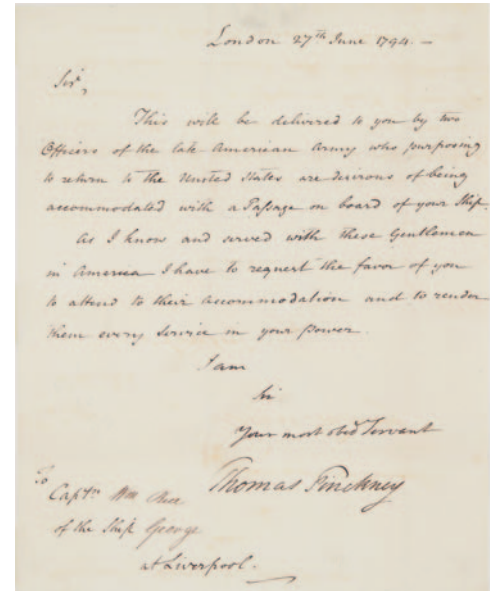 London 27th June 1794. —
Sir,
This will be delivered to you by two
Officers of the late American Army who purposing
to return to the United States are desirous of being
accommodated with a Passage on board of your Ship.
As I know and served with these Gentlemen
in America I have to request the favor of you
to attend to their accommodation and to render
them every Service in your power.
I am
Sir
Your most obed Servant
Thomas Pinckney
To
Captn Wm
of the Ship George
at Liverpool.